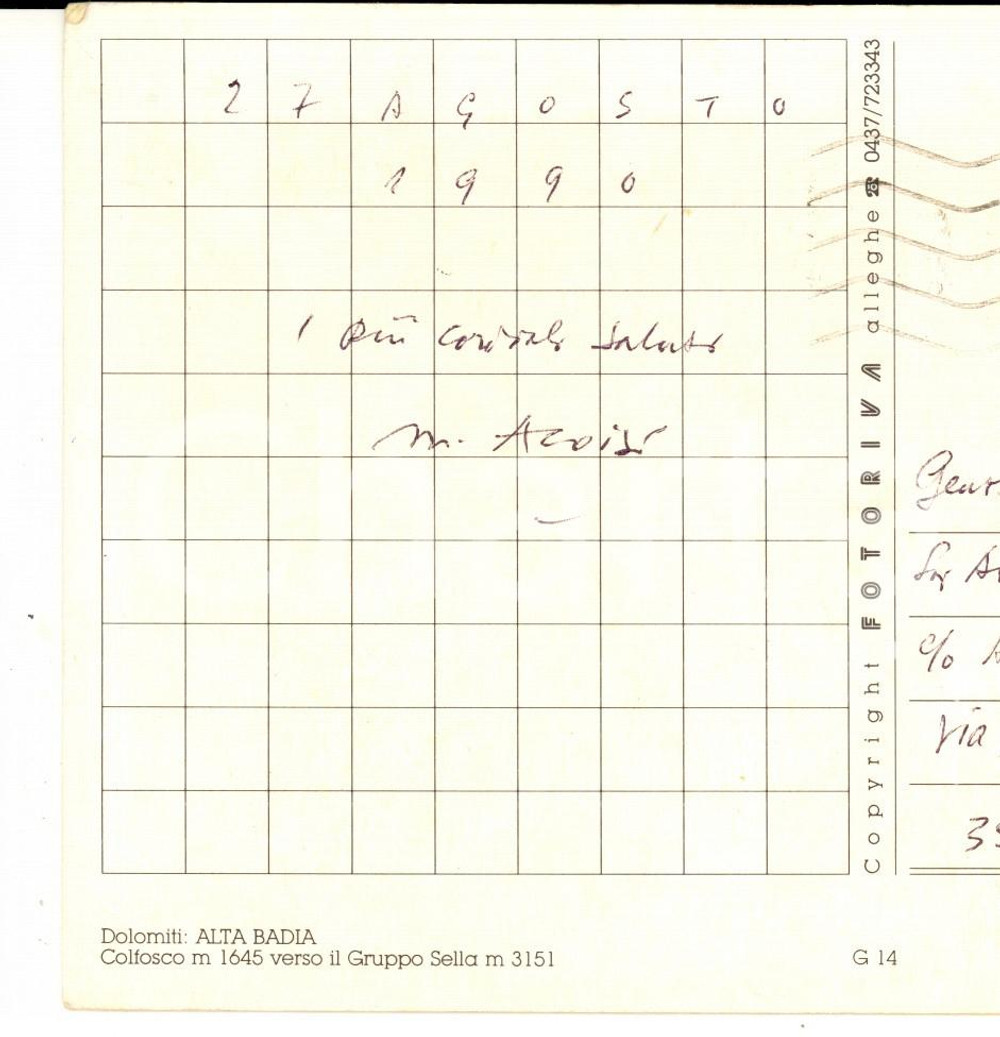 27 AGOSTO
1990
i più cordiali saluti
M.
Copyright FOTORIVA alleghe ☎ 0437/723343
c/o
Via
Dolomiti: ALTA BADIA
Colfosco m 1645 verso il Gruppo Sella m 3151
G 14